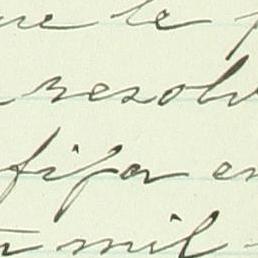 ue le
resolv
fija en
mil